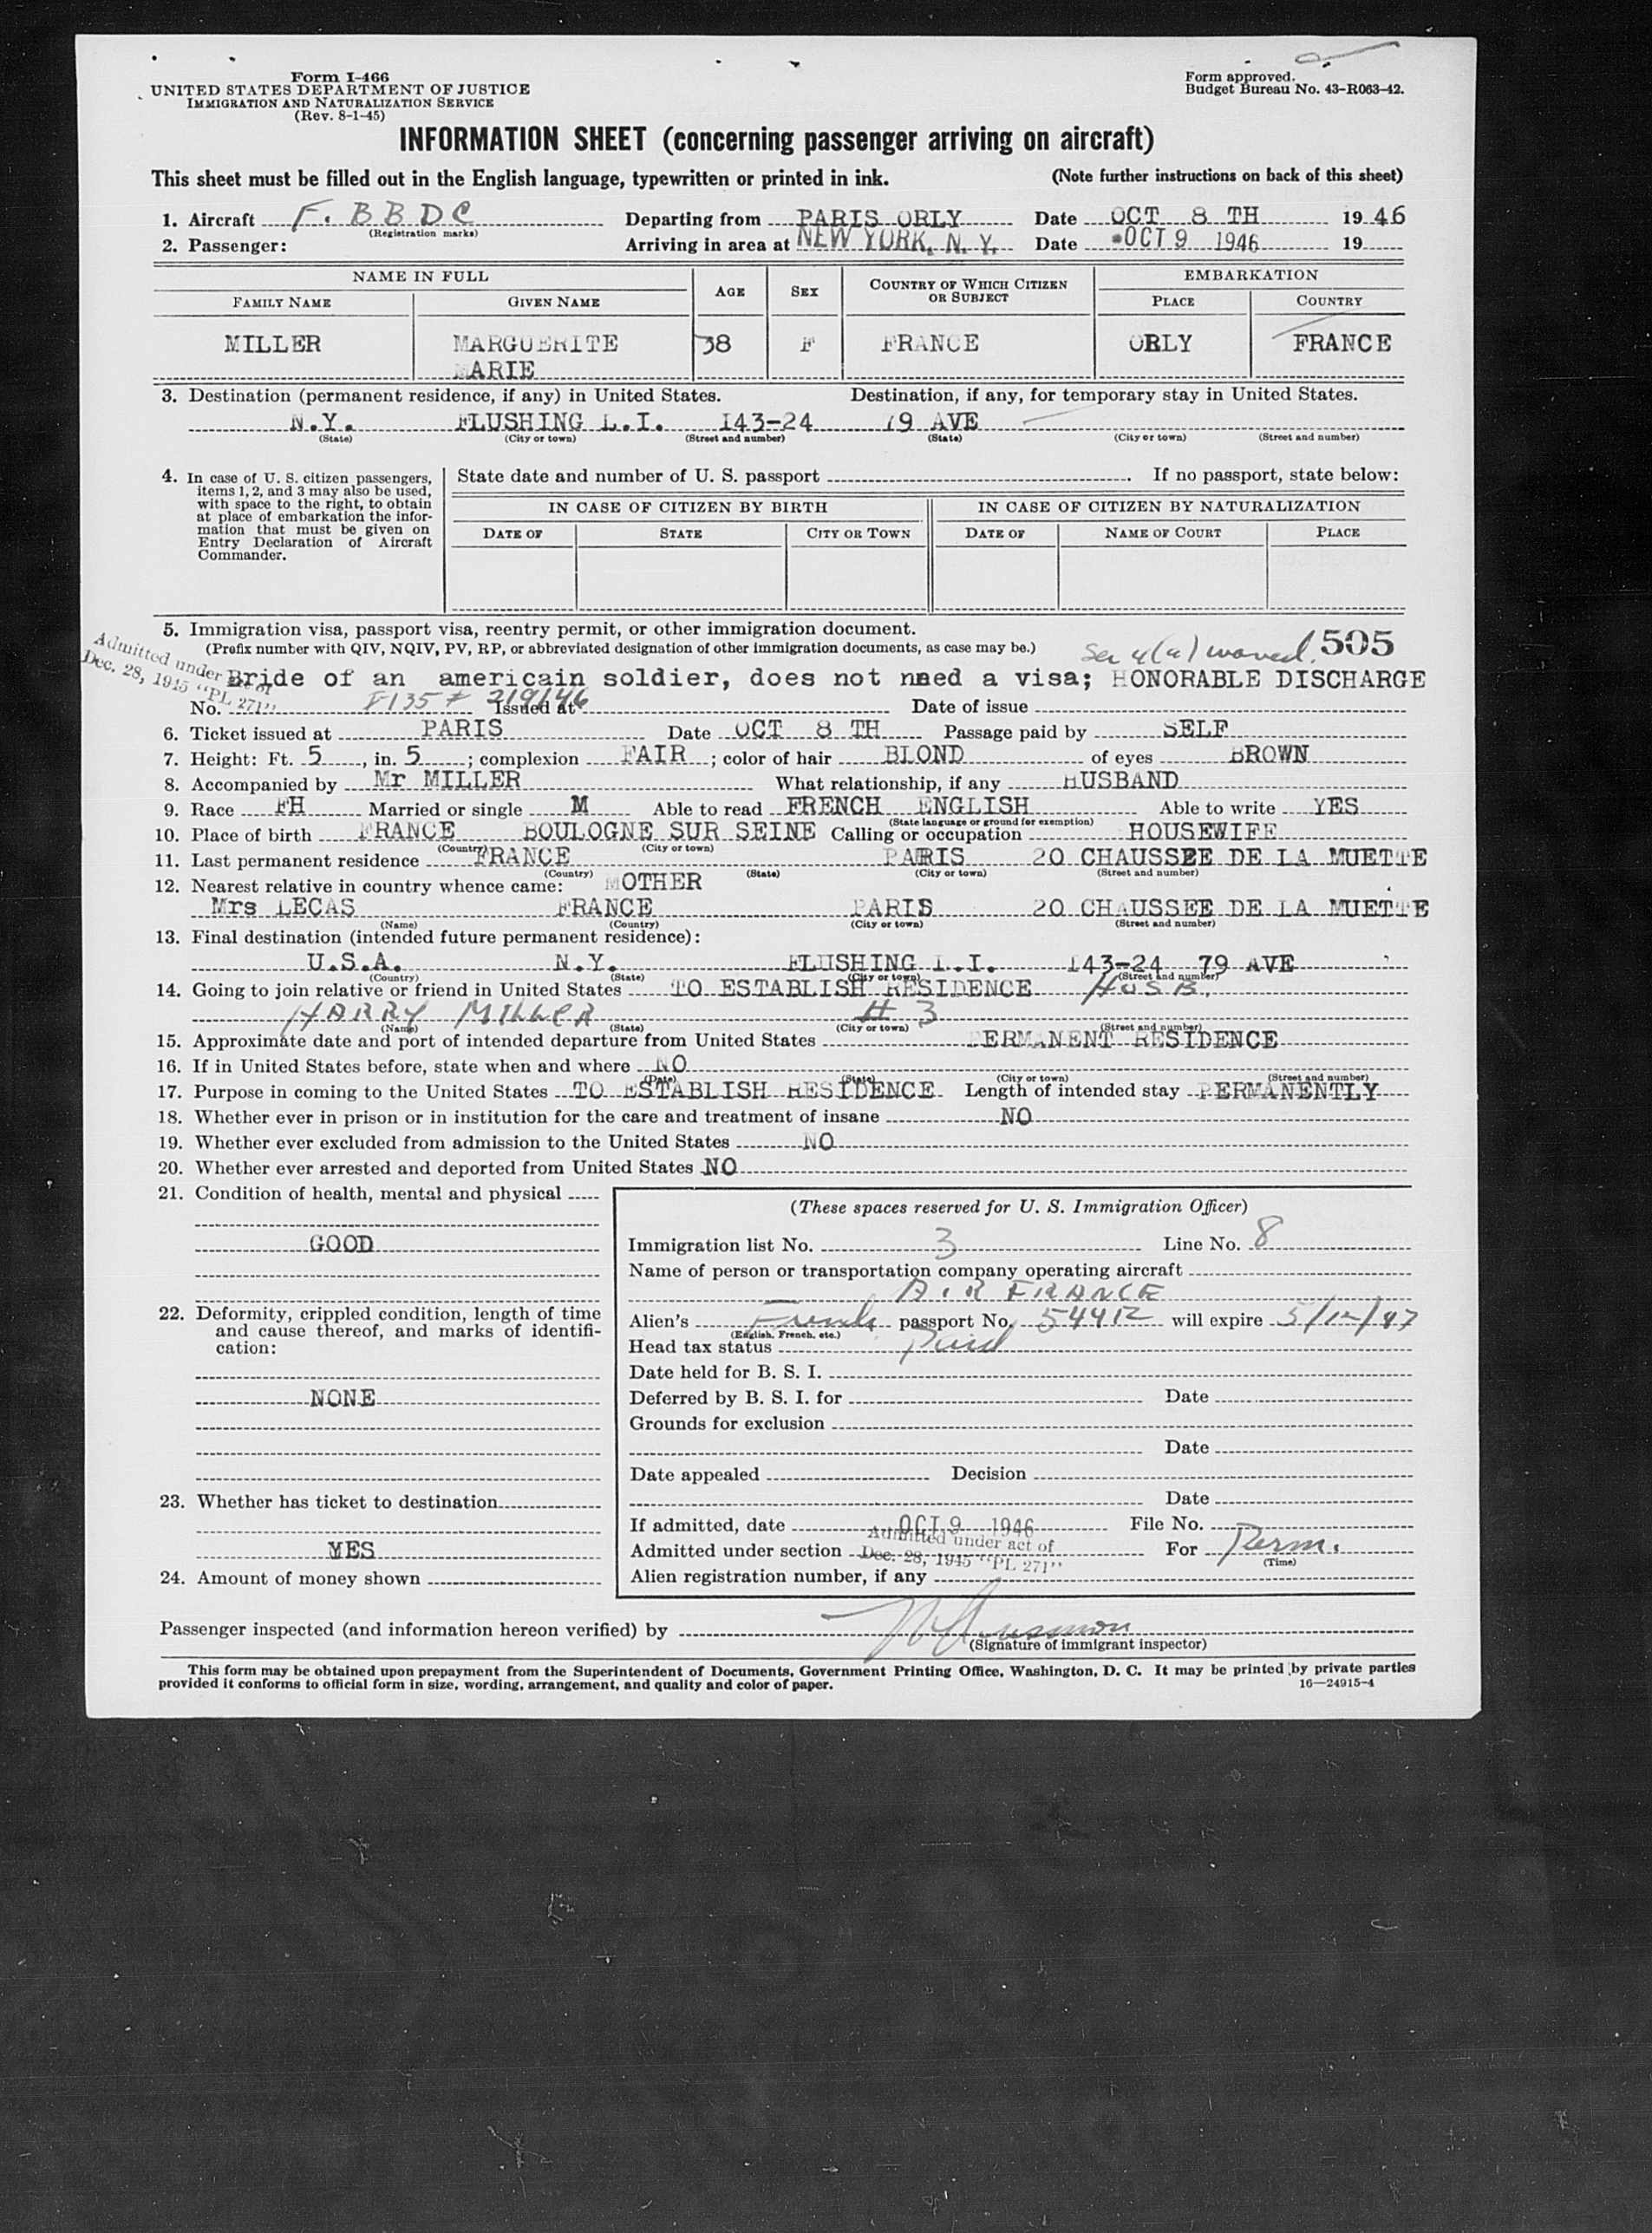 Form I-466
UNITED STATES DEPARTMENT OF JUSTICE
IMMIGRATION AND NATURALIZATION SERVICE
(Rev. 8-1-45)
Form approved.
Budget Bureau No. 43-R063-42.
INFORMATION SHEET (concerning passenger arriving on aircraft)
This sheet must be filled out in the English language, typewritten or printed in ink. (Note further instructions on back of this sheet)
1. Aircraft F. BBDC Departing from PARIS ORLY Date OCT 8 TH 19 46
(Registration marks)
2. Passenger: Arriving in area at NEW YORK, N. Y. Date OCT 9 1946 19
NAME IN FULL AGE SEX COUNTRY OF WHICH CITIZEN OR SUBJECT EMBARKATION
FAMILY NAME GIVEN NAME PLACE COUNTRY
MILLER MARGUERITE 38 F FRANCE ORLY FRANCE
MARIE
3. Destination (permanent residence, if any) in United States. Destination, if any, for temporary stay in United States.
N.Y. FLUSHING L.I. 143-24 79 AVE
(State) (City or town) (Street and number) (State) (City or town) (Street and number)
4. In case of U. S. citizen passengers, items 1, 2, and 3 may also be used, with space to the right, to obtain at place of embarkation the information that must be given on Entry Declaration of Aircraft Commander.
State date and number of U. S. passport . If no passport, state below:
IN CASE OF CITIZEN BY BIRTH IN CASE OF CITIZEN BY NATURALIZATION
DATE OF STATE CITY OR TOWN DATE OF NAME OF COURT PLACE
5. Immigration visa, passport visa, reentry permit, or other immigration document.
(Prefix number with QIV, NQIV, PV, RP, or abbreviated designation of other immigration documents, as case may be.) Sec 4(a) waived. 505
Admitted under act of
Dec. 28, 1945 "PL 271"
Bride of an americain soldier, does not need a visa; HONORABLE DISCHARGE
No. Issued at Date of issue
6. Ticket issued at PARIS Date OCT 8 TH Passage paid by SELF
7. Height: Ft. 5, in. 5; complexion FAIR; color of hair BLOND of eyes BROWN
8. Accompanied by Mr MILLER What relationship, if any HUSBAND
9. Race FH Married or single M Able to read FRENCH ENGLISH Able to write YES
(State language or ground for exemption)
10. Place of birth FRANCE BOULOGNE SUR SEINE Calling or occupation HOUSEWIFE
(Country) (City or town)
11. Last permanent residence FRANCE PARIS 20 CHAUSSEE DE LA MUETTE
(Country) (State) (City or town) (Street and number)
12. Nearest relative in country whence came: MOTHER
Mrs LECAS FRANCE PARIS 20 CHAUSSEE DE LA MUETTE
(Name) (Country) (City or town) (Street and number)
13. Final destination (intended future permanent residence):
U.S.A. N.Y. FLUSHING L.I. 143-24 79 AVE
(Country) (State) (City or town) (Street and number)
14. Going to join relative or friend in United States TO ESTABLISH RESIDENCE HUSB.
HARRY MILLER # 3
(Name) (State) (City or town) (Street and number)
15. Approximate date and port of intended departure from United States PERMANENT RESIDENCE
16. If in United States before, state when and where NO
(Date) (State) (City or town) (Street and number)
17. Purpose in coming to the United States TO ESTABLISH RESIDENCE Length of intended stay PERMANENTLY
18. Whether ever in prison or in institution for the care and treatment of insane NO
19. Whether ever excluded from admission to the United States NO
20. Whether ever arrested and deported from United States NO
21. Condition of health, mental and physical
GOOD
22. Deformity, crippled condition, length of time and cause thereof, and marks of identification:
NONE
23. Whether has ticket to destination
YES
24. Amount of money shown
(These spaces reserved for U. S. Immigration Officer)
Immigration list No. 3 Line No. 8
Name of person or transportation company operating aircraft
AIR FRANCE
Alien's French passport No. 54412 will expire 5/12/47
(English, French, etc.)
Head tax status Paid
Date held for B. S. I.
Deferred by B. S. I. for Date
Grounds for exclusion
Date
Date appealed Decision
Date
If admitted, date OCT 9 1946 File No.
Admitted under section Admitted under act of Dec. 28, 1945 "PL 271" For Perm.
(Time)
Alien registration number, if any
Passenger inspected (and information hereon verified) by
(Signature of immigrant inspector)
This form may be obtained upon prepayment from the Superintendent of Documents, Government Printing Office, Washington, D. C. It may be printed by private parties
provided it conforms to official form in size, wording, arrangement, and quality and color of paper. 16—24915-4